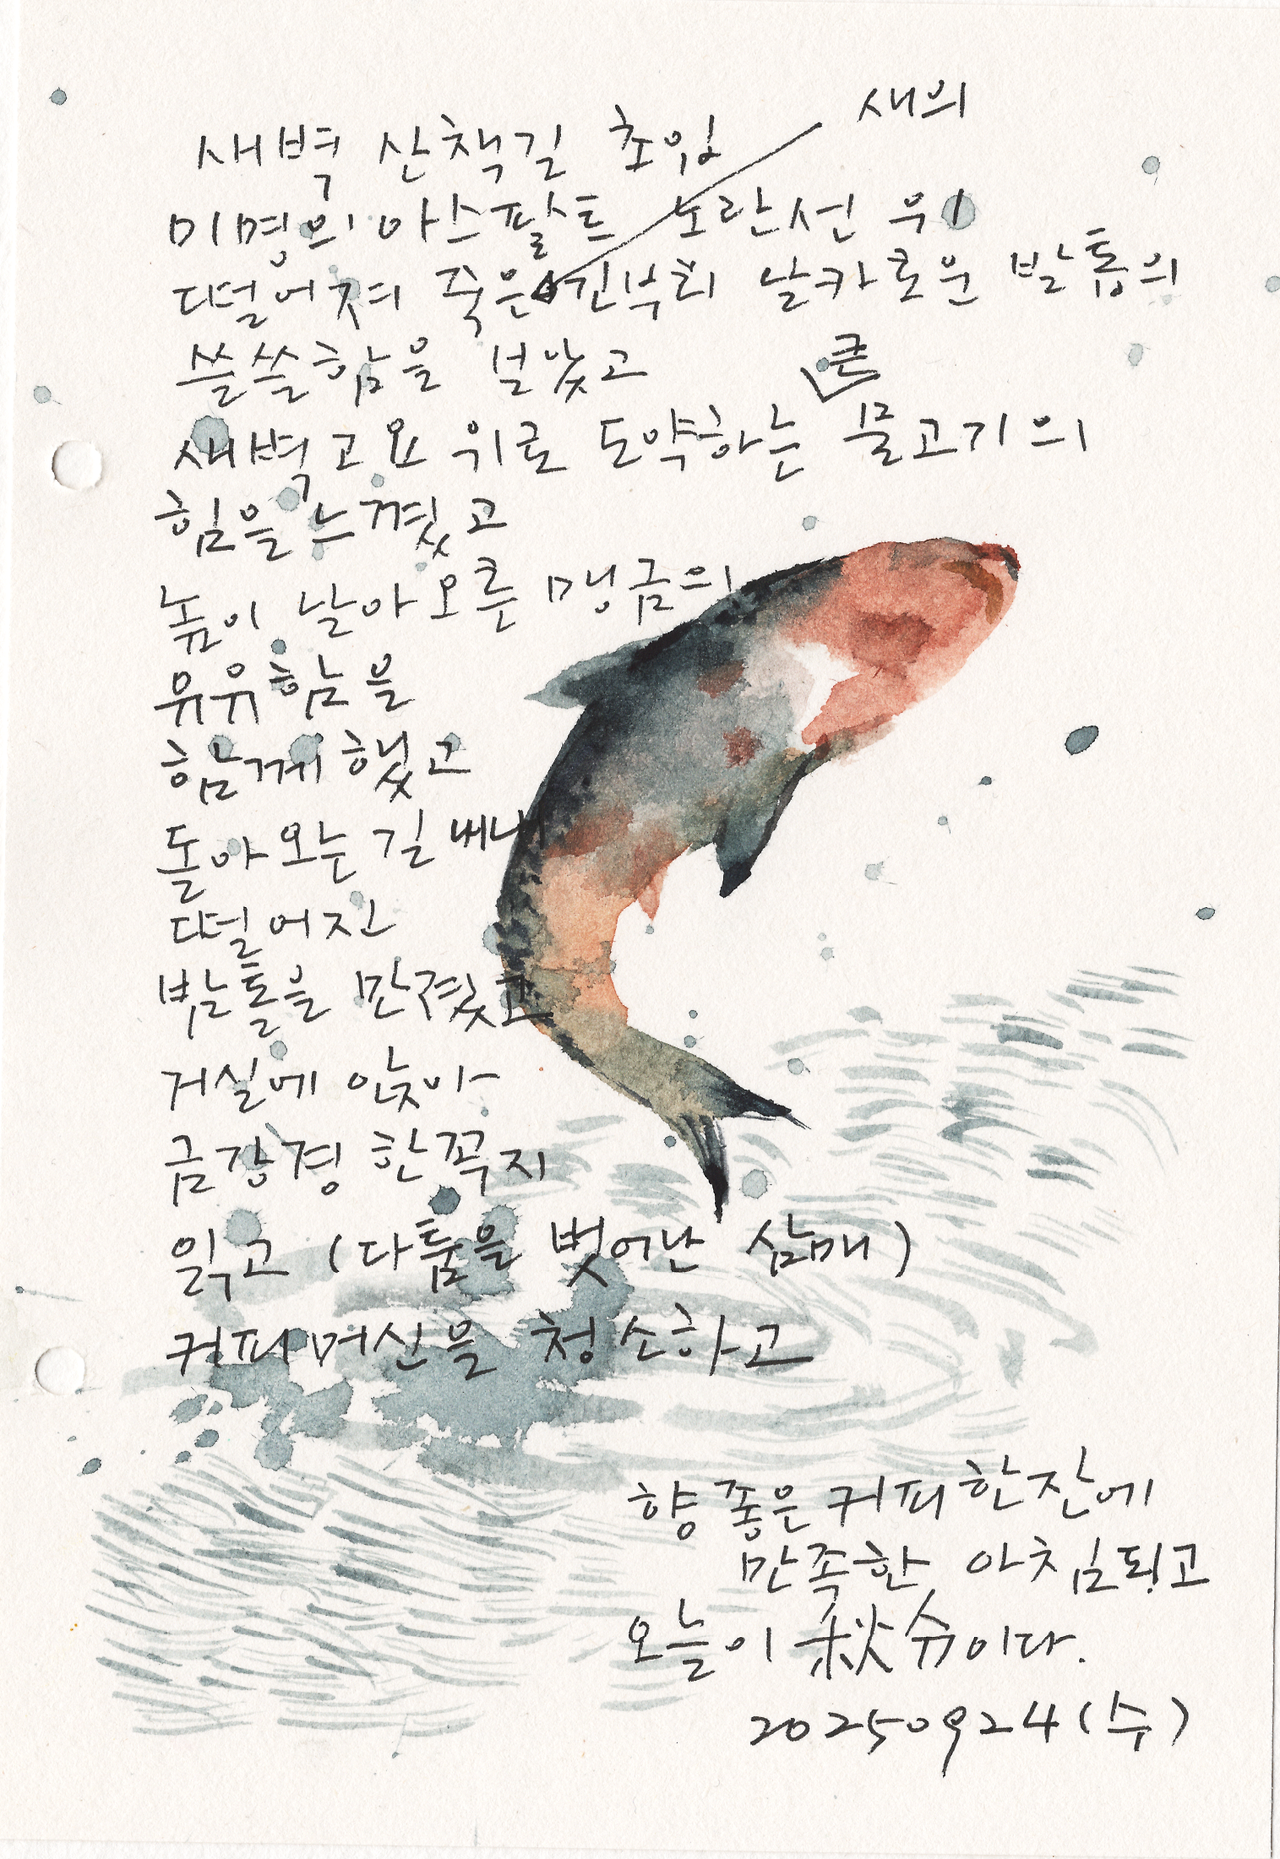 새벽 산책길 초입
새의
미명의 아스팔트 노란선 위
떨어져 죽은 긴부리 날카로운 발톱의
쓸쓸함을 보았고
큰
새벽고요 위로 도약하는 물고기의
힘을 느꼈고
높이 날아오른 맹금의
유유함을
함께 했고
돌아오는길
떨어진
밤톨을 만졌고
거실에 앉아
금강경 한꼭지
읽고 (다툼을 벗어난 삼매)
커피머신을 청소하고
향좋은커피한잔에
만족한 아침되고
오늘이 秋分이다.
20250924(수)